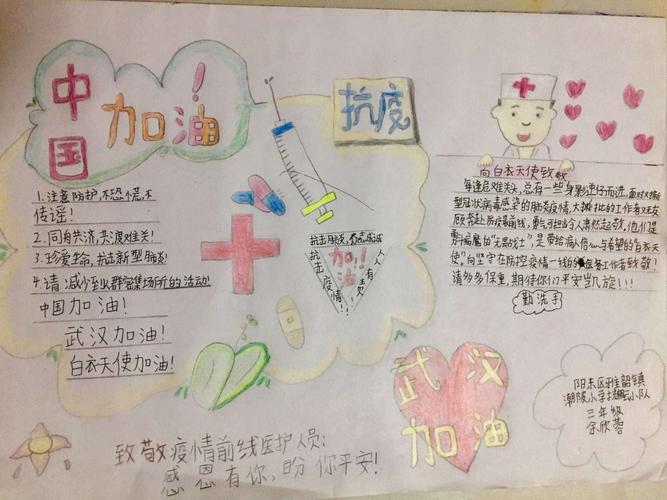 中国
加油!
抗疫
1.注意防护,不恐慌,不
传谣!
2.同舟共济,共渡难关!
3.珍爱生命,抗击新型肺炎!
4.请减少到人群密集场所的活动!
中国加油!
武汉加油!
白衣天使加油!
抗击肺炎,
加油!
抗击疫情!!
人人有责
向白衣天使致敬
每逢危难关头,总有一些身影逆行而进,面对新
型冠状病毒感染的肺炎疫情,大批的工作者义无反
顾奔赴防疫最前线,勇气可担当令人肃然起敬,他们是
带给病人信心与希望的白衣天
使。向坚守在防控疫情一线的医务工作者致敬!
请多多保重,期待你们平安凯旋!!!
勤洗手
武汉
加油
阳东区雅韶镇
小学
三年级
余欣蓉
致敬疫情前线医护人员:
感恩有你,盼你平安!